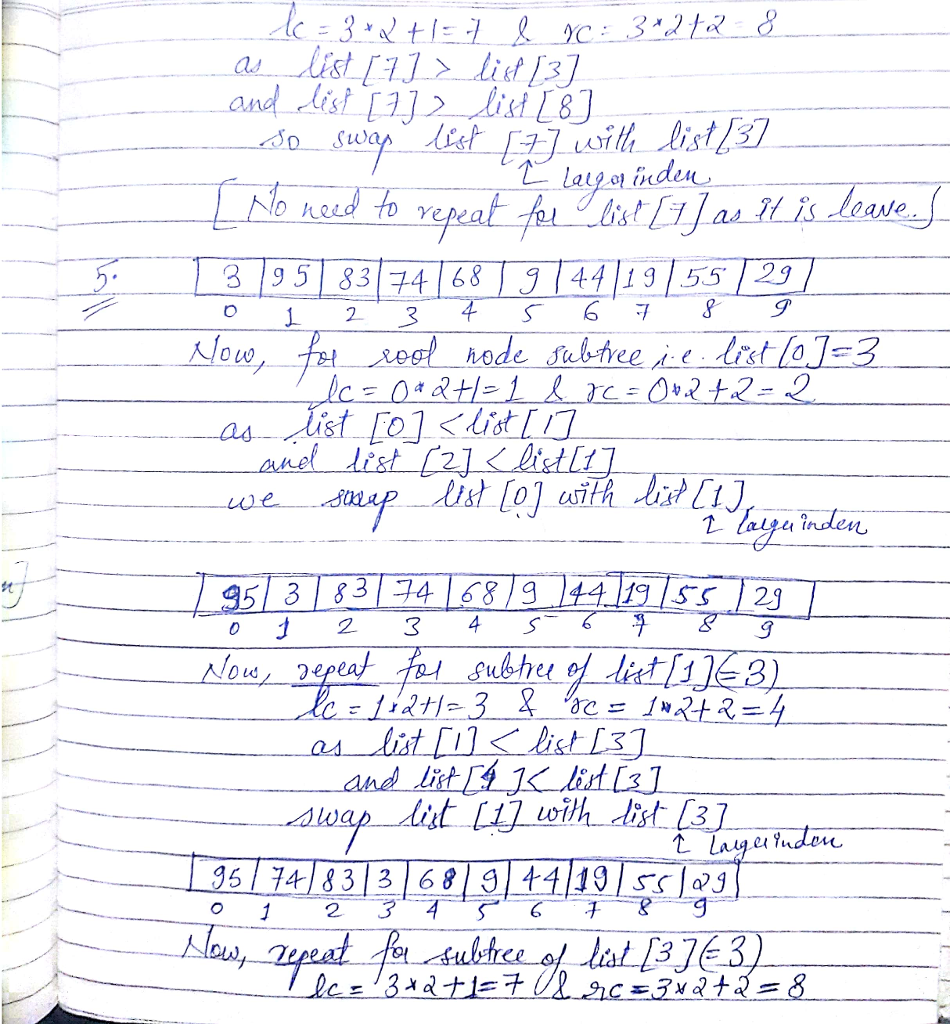 lc = 3*2+1=7 & rc = 3*2+2=8
as list [7] > list [3]
and list [7] > list [8]
so swap list [7] with list [3]
↑ larger inden
[No need to repeat for list [7] as it is leave.]
5. 3 95 83 74 68 9 44 19 55 29
0 1 2 3 4 5 6 7 8 9
Now, for root node subtree i.e. list [0]=3
lc = 0*2+1=1 & rc = 0*2+2=2
as list [0] < list [1]
and list [2] < list [1]
we swap list [0] with list [1]
↑ larger inden
95 3 83 74 68 9 44 19 55 29
0 1 2 3 4 5 6 7 8 9
Now, repeat for subtree of list [1] (=3)
lc = 1*2+1=3 & rc = 1*2+2=4
as list [1] < list [3]
and list [4] < list [3]
swap list [1] with list [3]
↑ larger inden
95 74 83 3 68 9 44 19 55 29
0 1 2 3 4 5 6 7 8 9
Now, repeat for subtree of list [3] (=3)
lc = 3*2+1=7 & rc = 3*2+2=8